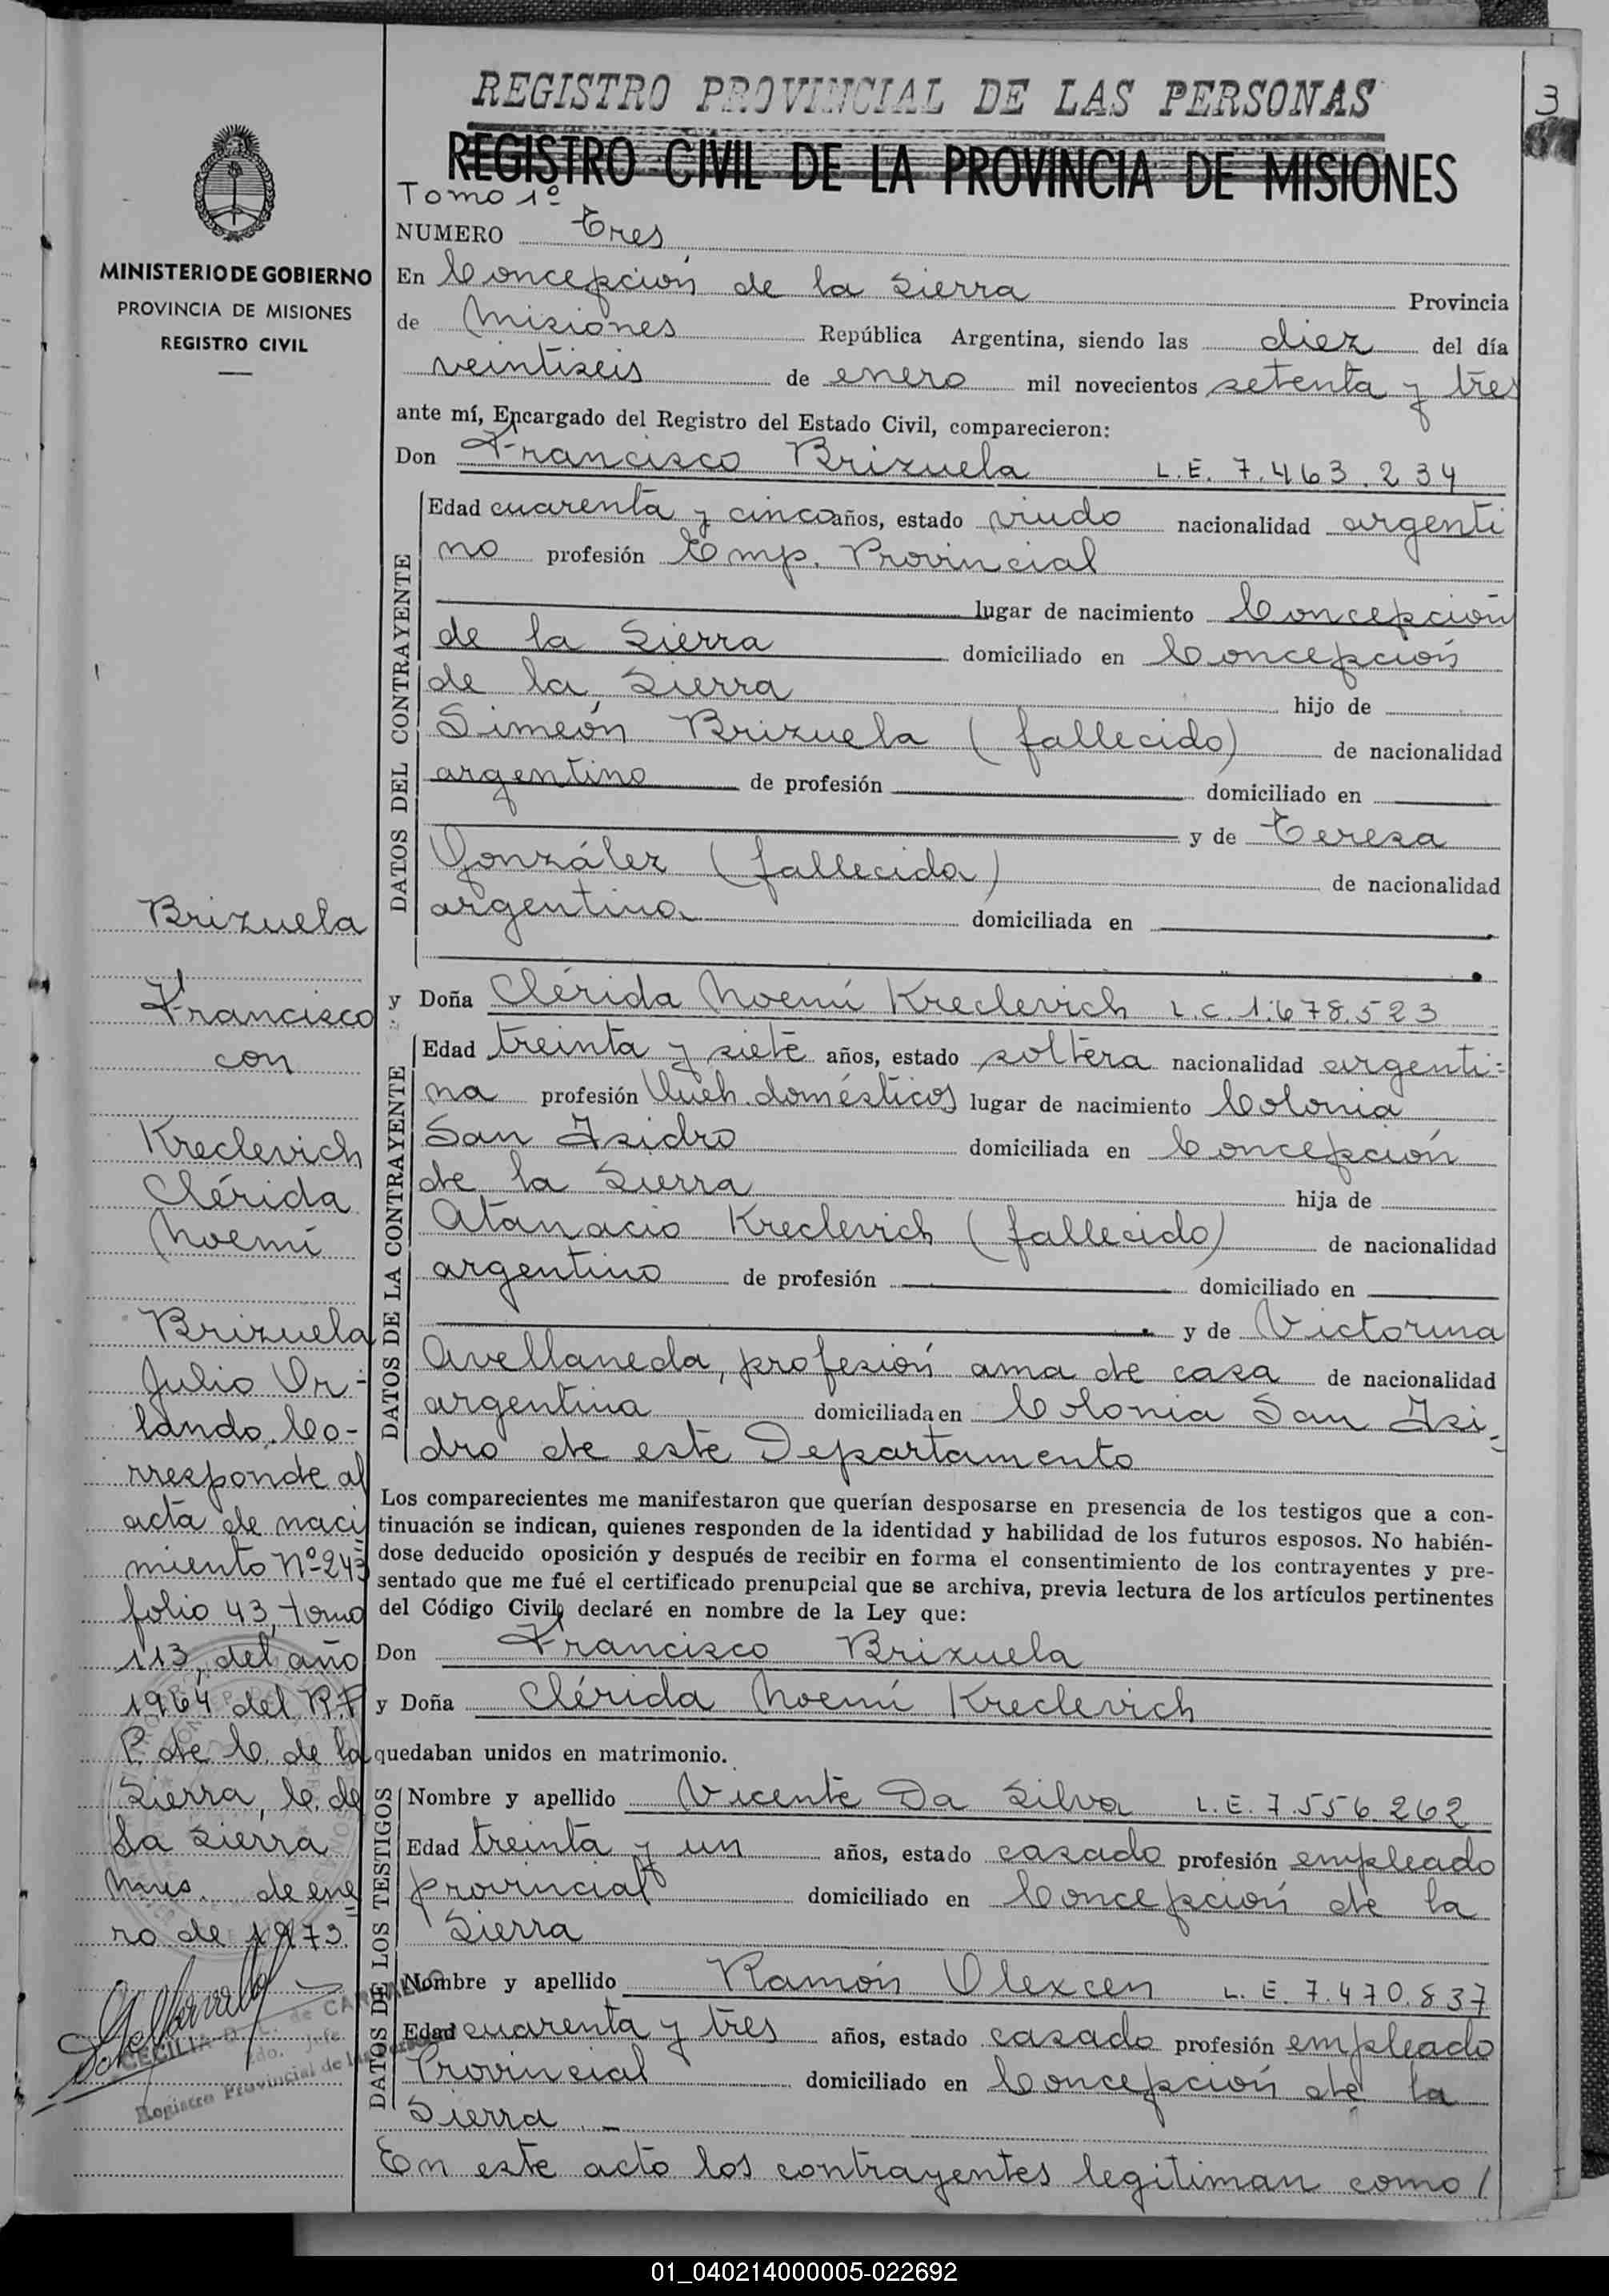 REGISTRO PROVINCIAL DE LAS PERSONAS
3
REGISTRO CIVIL DE LA PROVINCIA DE MISIONES
Tomo 1º
NUMERO Tres
MINISTERIO DE GOBIERNO
PROVINCIA DE MISIONES
REGISTRO CIVIL
En Concepción de la Sierra Provincia
de Misiones República Argentina, siendo las diez del día
veintiseis de enero mil novecientos setenta y tres
ante mí, Encargado del Registro del Estado Civil, comparecieron:
DATOS DEL CONTRAYENTE
Don Francisco Brizuela L.E. 7.463.234
Edad cuarenta y cinco años, estado viudo nacionalidad argenti
no profesión Emp. Provincial
lugar de nacimiento Concepción
de la Sierra domiciliado en Concepción
de la Sierra hijo de
Simeón Brizuela (fallecido) de nacionalidad
argentino de profesión domiciliado en
y de Teresa
González (fallecida) de nacionalidad
argentina domiciliada en
DATOS DE LA CONTRAYENTE
y Doña Clérida Noemí Kreclevich L.C. 1.678.523
Edad treinta y siete años, estado soltera nacionalidad argenti=
na profesión Queh. domésticos lugar de nacimiento Colonia
San Isidro domiciliada en Concepción
de la Sierra hija de
Atanacio Kreclevich (fallecido) de nacionalidad
argentino de profesión domiciliado en
y de Victorina
Avellaneda, profesión ama de casa de nacionalidad
argentina domiciliada en Colonia San Isi-
dro de este Departamento
Los comparecientes me manifestaron que querían desposarse en presencia de los testigos que a con-
tinuación se indican, quienes responden de la identidad y habilidad de los futuros esposos. No habién-
dose deducido oposición y después de recibir en forma el consentimiento de los contrayentes y pre-
sentado que me fué el certificado prenupcial que se archiva, previa lectura de los artículos pertinentes
del Código Civil, declaré en nombre de la Ley que:
Don Francisco Brizuela
y Doña Clérida Noemí Kreclevich
quedaban unidos en matrimonio.
DATOS DE LOS TESTIGOS
Nombre y apellido Vicente Da Silva L.E. 7.556.262
Edad treinta y un años, estado casado profesión empleado
provincial domiciliado en Concepción de la
Sierra
Nombre y apellido Ramón Olexcen L.E. 7.470.837
Edad cuarenta y tres años, estado casado profesión empleado
Provincial domiciliado en Concepción de la
Sierra.-
En este acto los contrayentes legitiman como /
Brizuela
Francisco
con
Kreclevich
Clérida
Noemí
Brizuela
Julio Or-
lando. Co-
rresponde al
acta de naci
miento Nº 243
folio 43, tomo
113, del año
1964 del R.P.
P. de C. de la
Sierra, C. de
la Sierra
Mnes. de ene
ro de 1973.
CECILIA de CARVALLO
Jefe
Registro Provincial de las
01_040214000005-022692